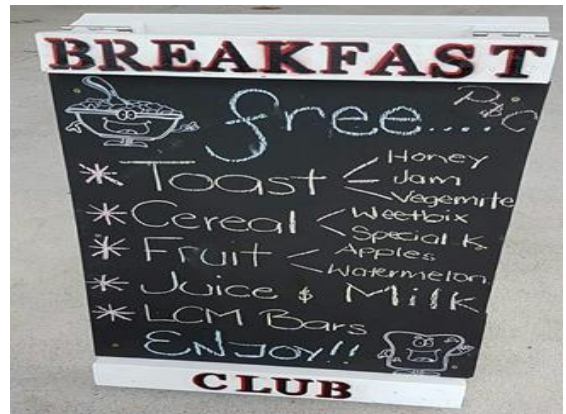 BREAKFAST
P&C
free....
* Toast < Honey
Jam
Vegemite
* Cereal < Weetbix
Special K.
* Fruit < Apples
Watermelon
* Juice & Milk
* LCM Bars
ENJOY!!
CLUB